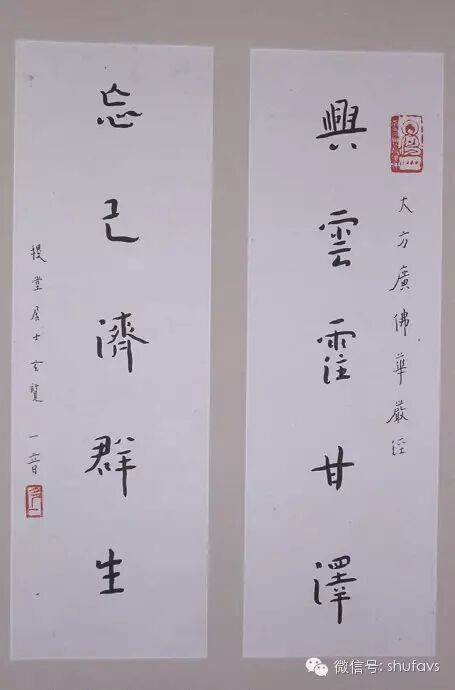 大方廣佛華嚴經
興雲霔甘澤
忘己濟群生
堂居士玄覽 一音
微信号: shufavs